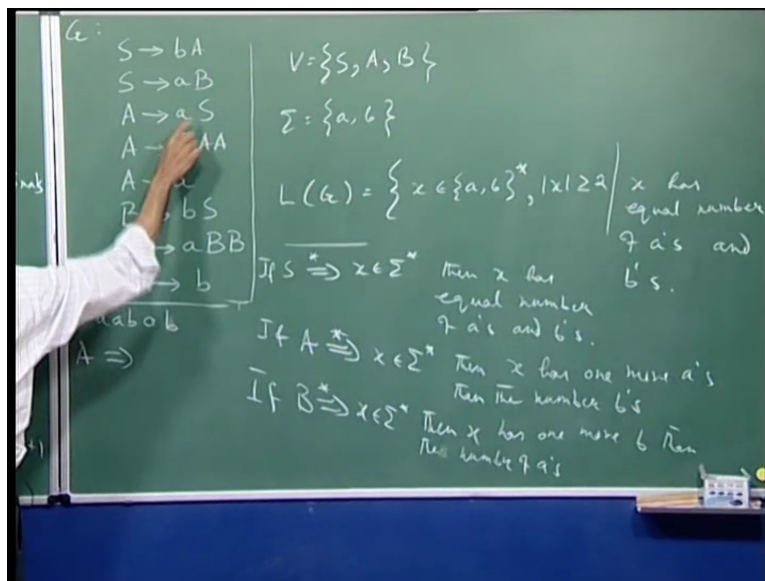 G:
S → bA
S → aB
A → aS
A → AA
A → a
B → bS
→ aBB
→ b
aabab
A ⇒
V = {S, A, B}
Σ = {a, b}
L(G) = {x ∈ {a, b}*, |x| ≥ 2 | x has
equal number
of a's and
b's.
If S ⇒* x ∈ Σ* then x has
equal number
of a's and b's.
If A ⇒* x ∈ Σ* Then x has one more a's
Than the number b's
If B ⇒* x ∈ Σ* Then x has one more b Than
The number of a's